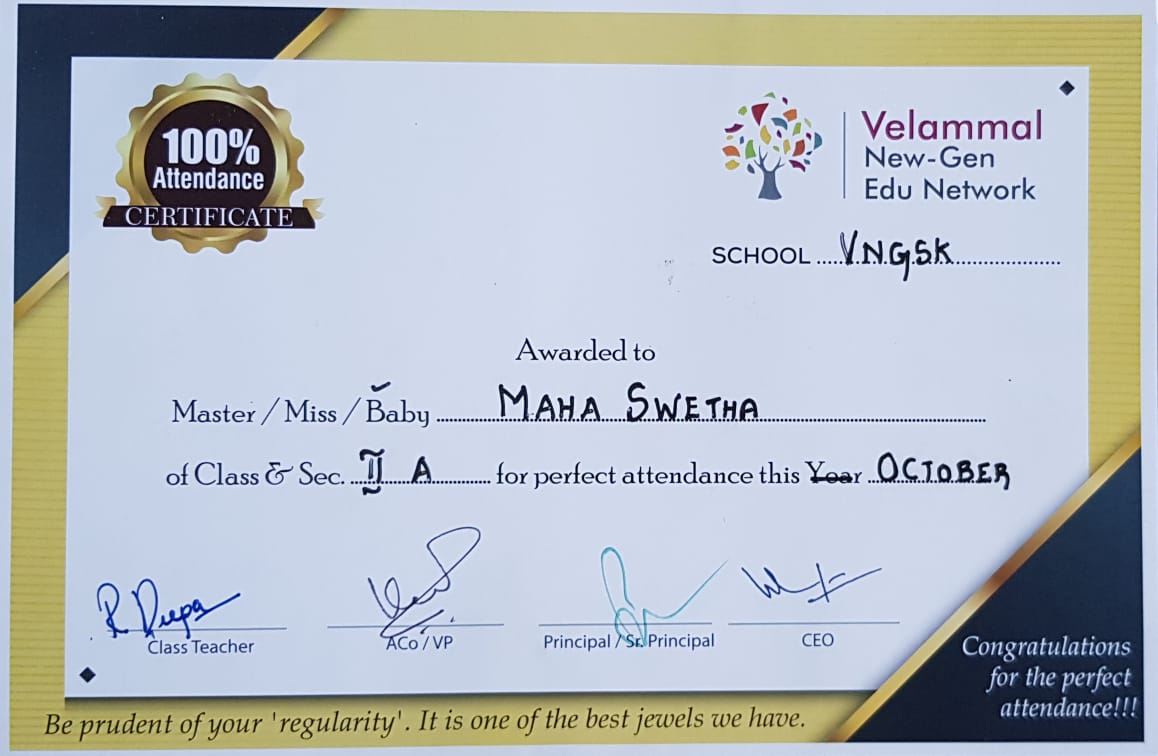 100%
Attendance
CERTIFICATE
Velammal
New-Gen
Edu Network
SCHOOL .....V.N.G.S.K....................
Awarded to
Master / Miss / Baby ..........MAHA SWETHA..........
of Class & Sec. ....II A............ for perfect attendance this Year ..OCTOBER
R. Deepa
Class Teacher
ACo / VP
Principal / Sr. Principal
CEO
Congratulations
for the perfect
attendance!!!
Be prudent of your 'regularity'. It is one of the best jewels we have.